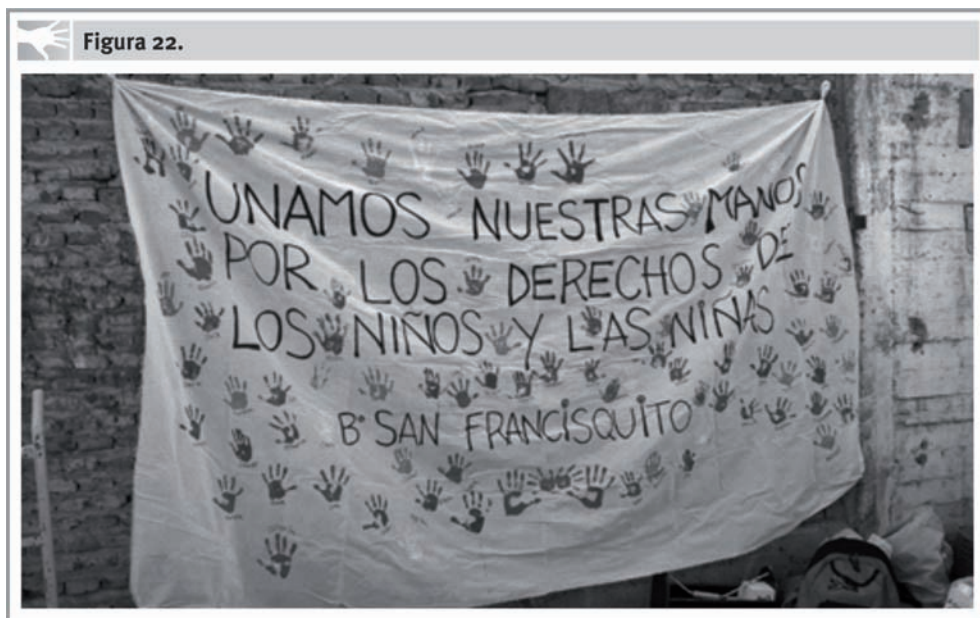 Figura 22.
UNAMOS NUESTRAS MANOS
POR LOS DERECHOS DE
LOS NIÑOS Y LAS NIÑAS
Bº SAN FRANCISQUITO